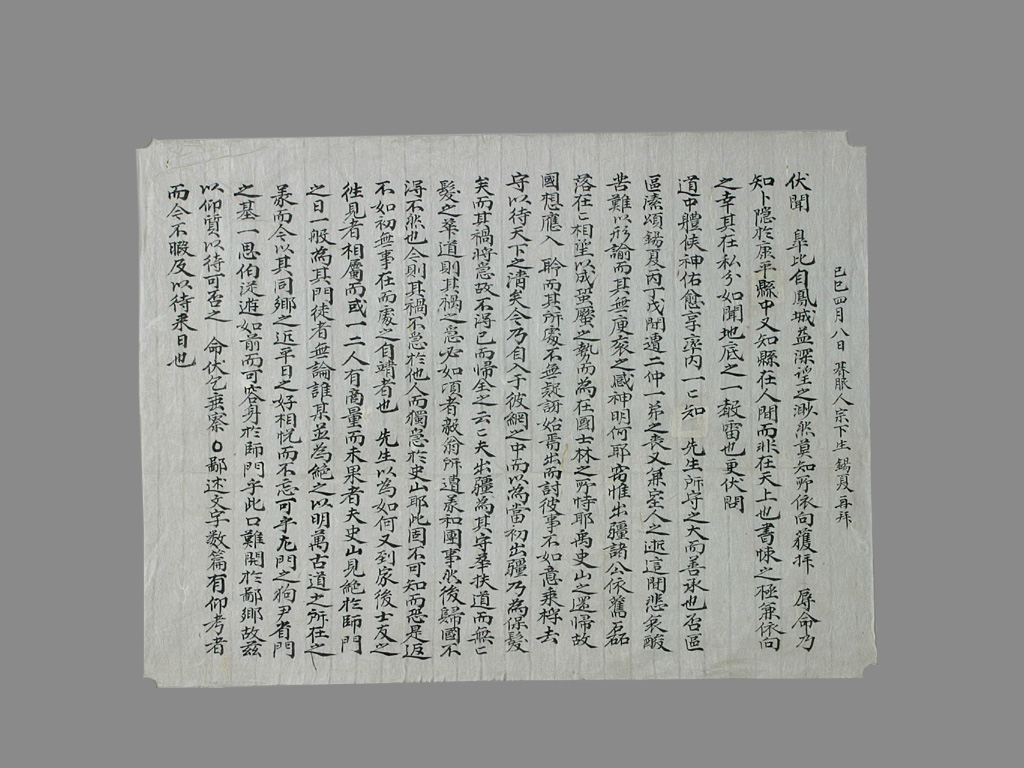 己巳四月八日 朞服人宗下生 錫夏 再拜
伏聞 皐比自鳳城益深望之渺然莫知所依向獲拜 辱命乃
知卜隱於康平縣中又知縣在人間而非在天上也書悚之極兼依向
之幸其在私分如聞地底之一聲雷也更伏問
道中體俠神佑愈享率內一一知 先生所守之大而善承也否區
區溱頌錫夏丙丁戊間遭二仲一弟之喪又兼室人之逝這間悲哀酸
苦難以形諭而其無庚裒之感神明何耶寄惟出疆諸公依舊磊
落在在相望以成蛩蟨之勢而為在國士林之所恃耶禹史山之還帰故
國想應入 聆而其所處不無疑訝始焉出而討彼事不如意乘桴去
守以待天下之清矣今乃自入于彼網之中而以為當初出疆乃為保髮
矣而其禍將急故不得已而帰全之云云夫出疆為其守華扶道而無
髮之華道則其禍之急必如頃者毅翁所遭義和團事然後歸國不
得不然也今則其禍不急於他人而獨急於史山耶此固不可知而恐是返
不如初無事在而處之自靖者也 先生以為如何又到家後士友之
徃見者相屬而或一二人有商量而未果者夫史山見絶於師門
之日一般為其門徒者無論誰某並為絶之以明萬古道之所在之
義而今以其同鄉之近平日之好相悅而不忘可乎尤門之拘尹者門
之基一思伯從遊如前而可容身於師門乎此口難開於鄙鄉故玆
以仰質以待可否之 命伏乞垂察○鄙述文字数篇有仰考者
而今不暇及以待來日也